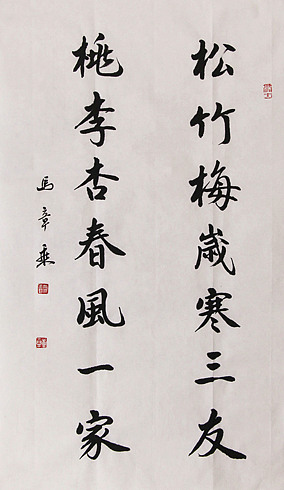 松竹梅歲寒三友
桃李杏春風一家
馬章乘